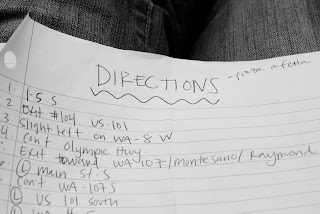 DIRECTIONS - pizza a fetta
1. I-5 S
2 Exit #104 US-101
3 Slight left on WA-8 W
4 Con't Olympic Hwy
Exit toward WA 107/montesano/Raymond
(L) main St S
Con't WA-107 S
(L) US 101 South